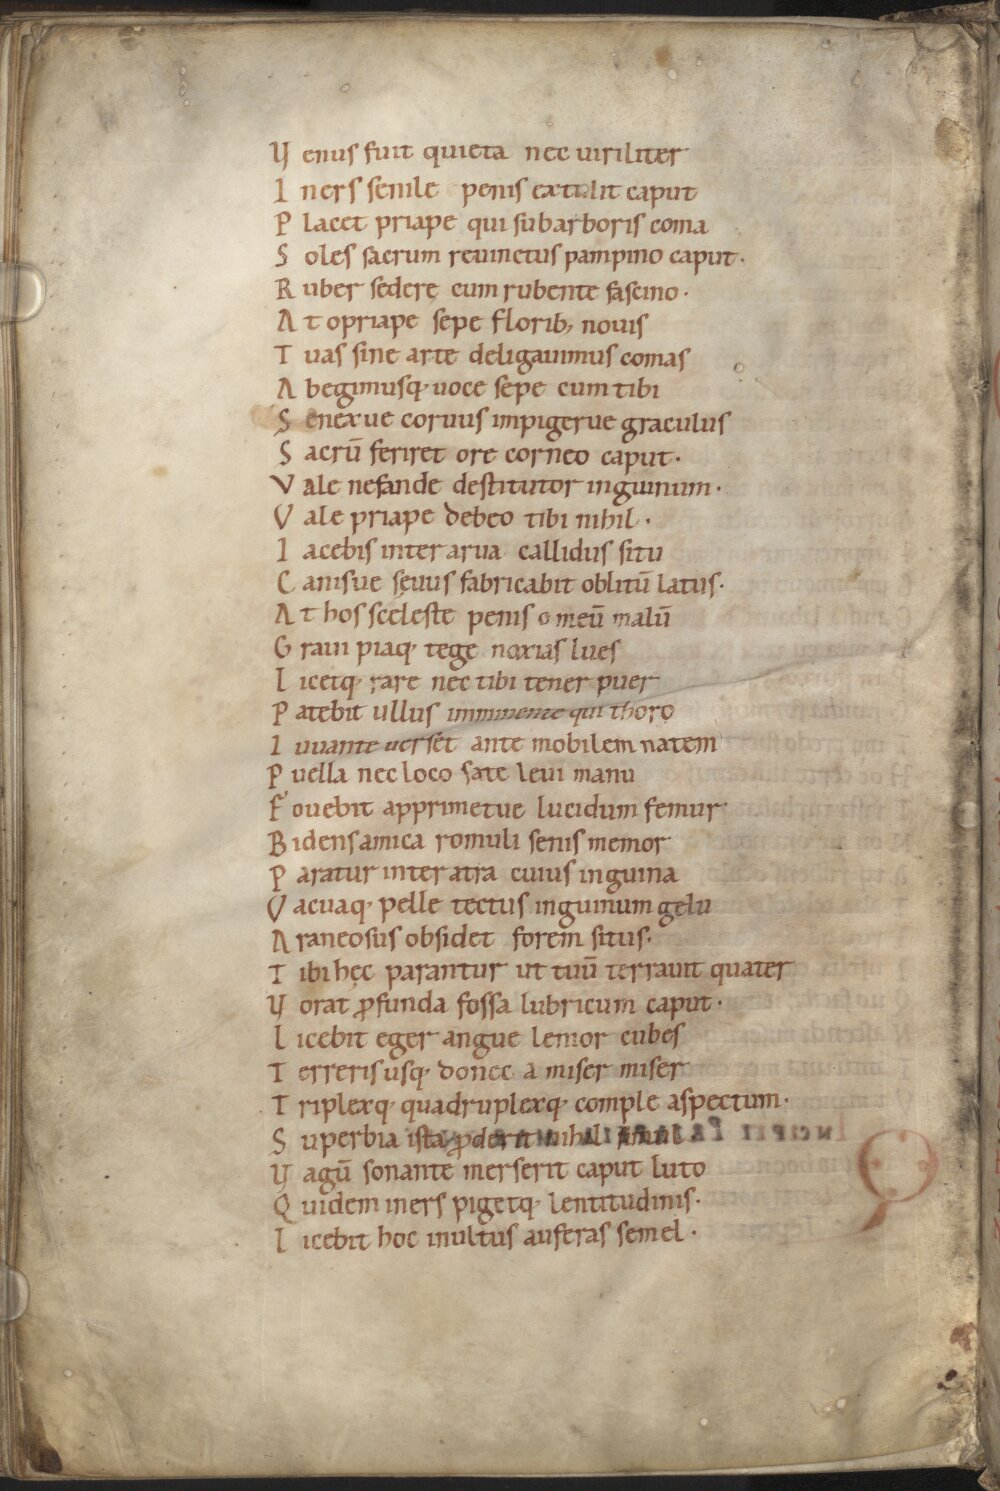 Venus fuit quieta nec uiriliter
Iners senile penis extulit caput
Placet priape qui sub arboris coma
Soles sacrum reuinctus pampino caput.
Ruber sedere cum rubente fascino.
At o priape sepe florib; nouis
Tuas sine arte deligauimus comas
Abegimusq; uoce sepe cum tibi
Senexue coruus impigerue graculus
Sacrū feriret ore corneo caput.
Vale nefande destitutor inguinum.
Vale priape debeo tibi nihil.
Iacebis inter arua callidus situ
Canisue sęuus fabricabit oblitū latus.
At hos sceleste penis o meū malū
Graui piaq; tege noxias lues
Licetq; rare nec tibi tener puer
Patebit ullus imminente qui thoro
Iuuante uerset ante mobilem natem
Puella nec loco sate leui manu
Fouebit apprimetue lucidum femur
Bidens amica romuli senis memor
Paratur inter atra cuius inguina
Vacuaq; pelle tectus inguinum gelu
Araneosus obsidet forem situs.
Tibi hęc parantur ut tuū terrauit quater
Vorat ꝓfunda fossa lubricum caput.
Licebit eger angue lenior cubes
Terreris usq; donec a miser miser
Triplexq; quadruplexq; comple aspectum.
Superbia ista ꝓderit nihil
Vagū sonante merserit caput luto
Quidem iners pigetq; lentitudinis.
Licebit hoc inultus auferas semel.